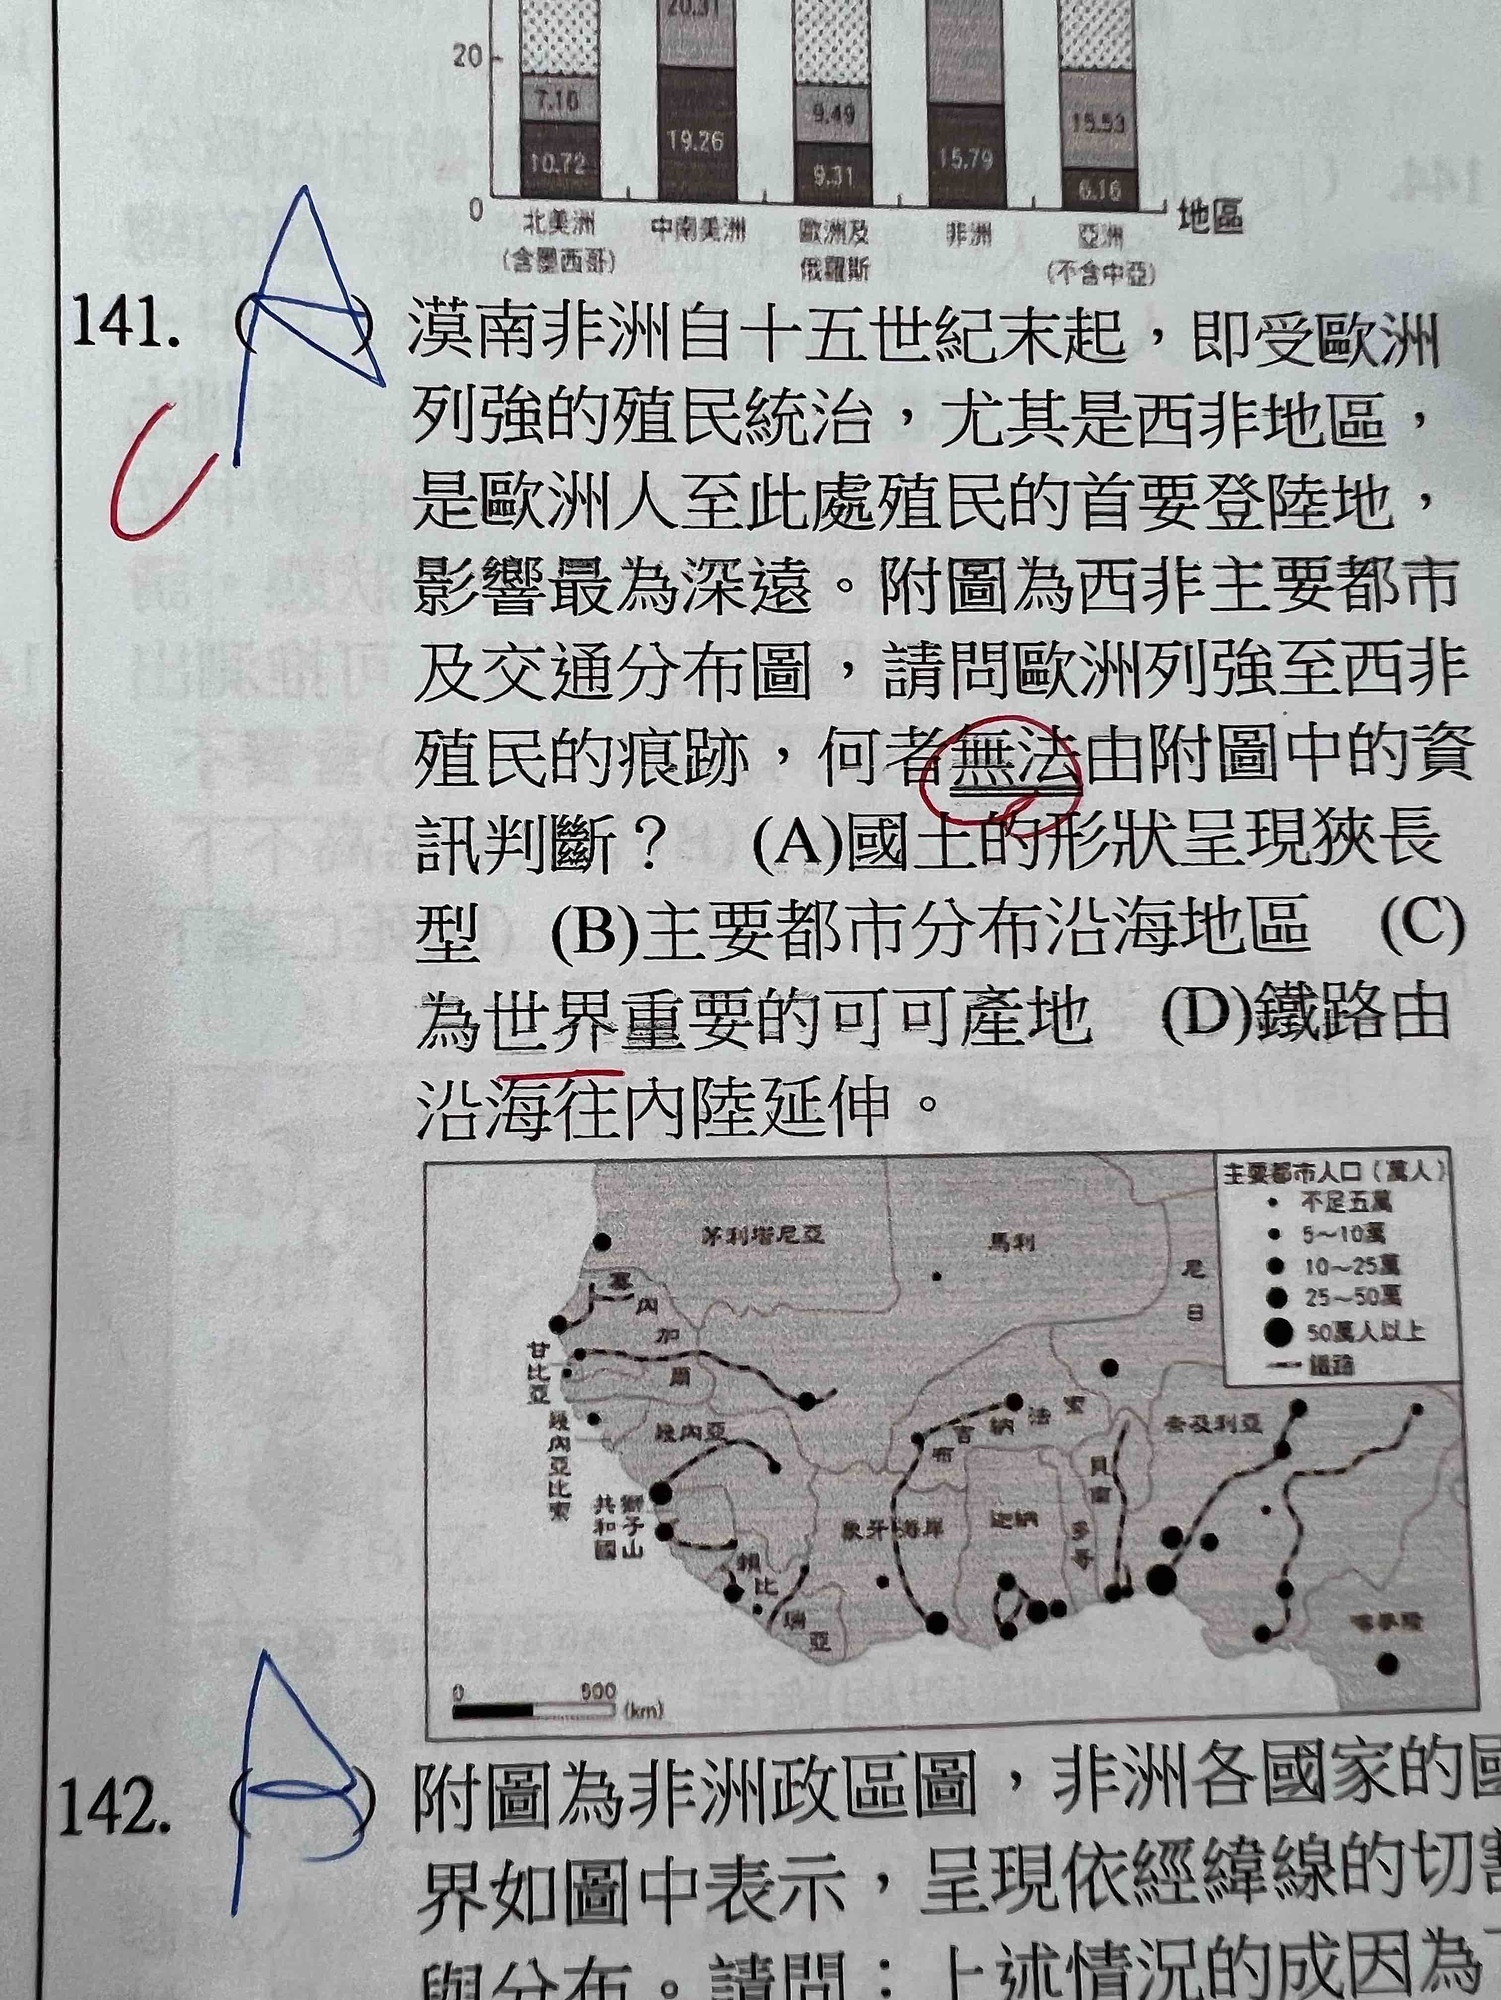 20
20.31
7.18
9.49
15.53
10.72
19.26
9.31
15.79
6.16
0
北美洲
(含墨西哥)
中南美洲
歐洲及
俄羅斯
非洲
亞洲
(不含中亞)
地區
A
C
141. ( ) 漠南非洲自十五世紀末起，即受歐洲
列強的殖民統治，尤其是西非地區，
是歐洲人至此處殖民的首要登陸地，
影響最為深遠。附圖為西非主要都市
及交通分布圖，請問歐洲列強至西非
殖民的痕跡，何者無法由附圖中的資
訊判斷？ (A)國土的形狀呈現狹長
型 (B)主要都市分布沿海地區 (C)
為世界重要的可可產地 (D)鐵路由
沿海往內陸延伸。
主要都市人口（萬人）
不足五萬
5～10萬
10～25萬
25～50萬
50萬人以上
鐵路
茅利塔尼亞
馬利
尼日
塞內加爾
甘比亞
幾內亞比索
幾內亞
獅子山
共和國
賴比瑞亞
象牙海岸
布吉納法索
迦納
多哥
貝南
奈及利亞
喀麥隆
0 500 (km)
142. ( ) 附圖為非洲政區圖，非洲各國家的國
界如圖中表示，呈現依經緯線的切割
與分布。請問：上述情況的成因為下